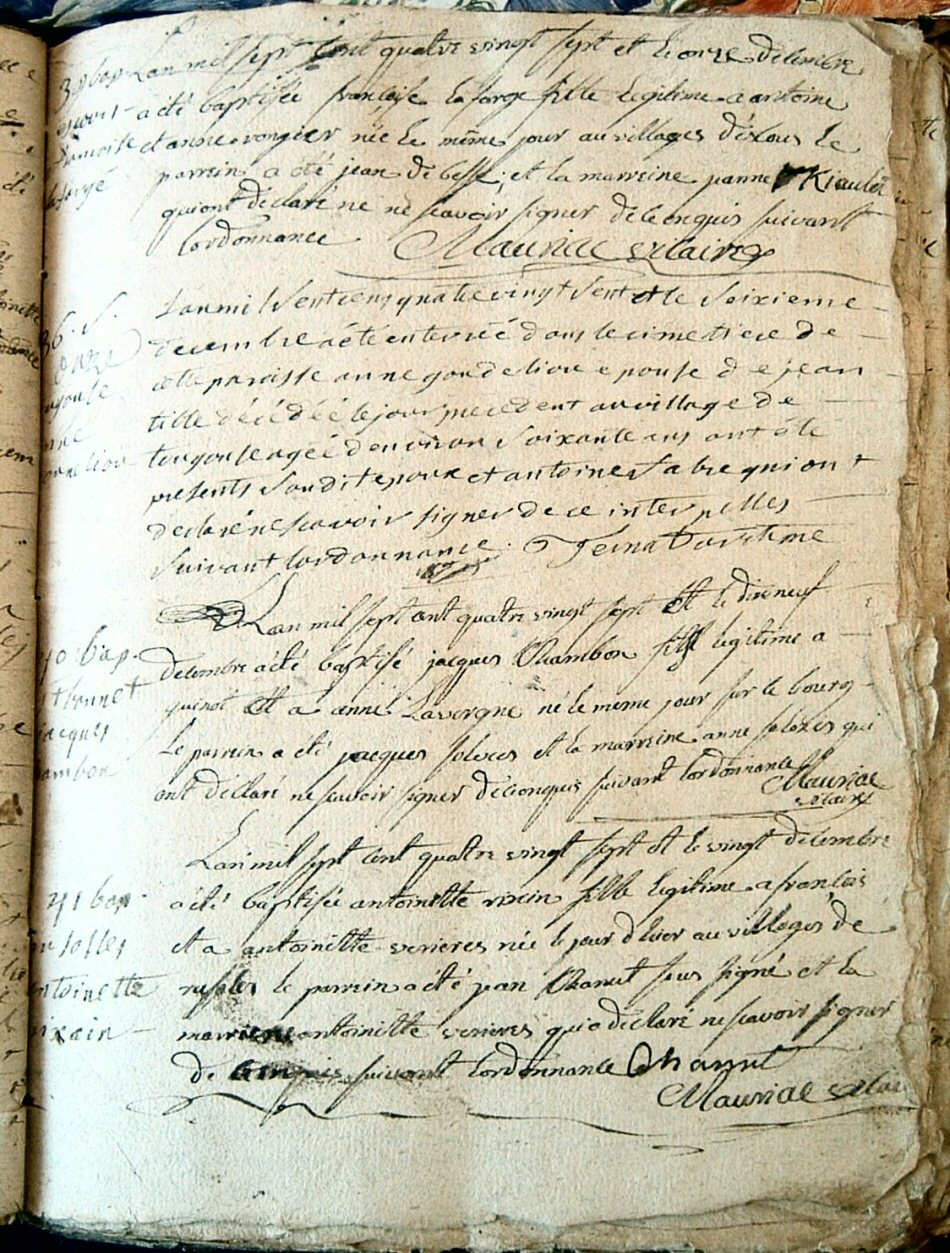 39 bap
Lan mil sept cent quatre vingt sept et le onze decembre
a été baptisée francoise la farge fille legitime a antoine
et anne rongier née le même jour au villages le
parrein a été jean de besse, et la marreine janne
qui ont declaré ne ne scavoir signer de ce enquis suivant
lordonnance Mauriac vicaire
francoise
lafarge
Lan mil sept cens quatre vingt sept et le seixieme
decembre a été enterréé dans le cimetiere de
cette paroisse anne gondelion epouse de jean
tille décédéé le jour precedent au village de
tougouse agéé denviron soixante ans ont été
presents sondit epoux et antoine fabre qui ont
declaré ne scavoir signer de ce interpellés
suivant lordonnance.
Lan mil sept cent quatre vingt sept et le dixneuf
decembre a été baptisé jacques Chambon fils legitime a
et a anne Lavergne né le meme jour sur le bourg
le parrein a été jacques soleres et la marreine anne soleres qui
ont declaré ne scavoir signer de ce enquis suivant lordonnance Mauriac
vicaire
40 bap.
t bonnet
jacques
ambon
Lan mil sept cent quatre vingt sept et le vingt decembre
a été baptisée antoinette vixin fille legitime a francois
et a antoinette verieres née le jour dhier au villages de
le parrein a été jean Chanut sous signé et la
marreine antoinette verieres qui a declaré ne scavoir signer
de ce enquis suivant lordonnance Chanut
Mauriac vicai
41 bap.
antoinette